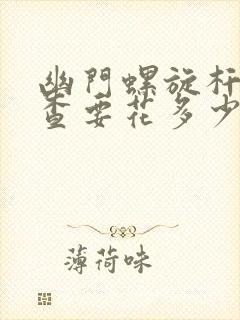 幽門螺旋杆
查要花多少
薄荷味